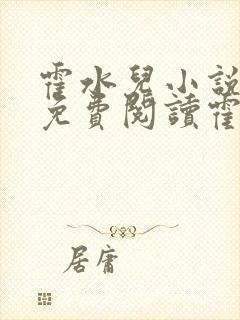 霍水兒小說
免費閱讀霍
居庸